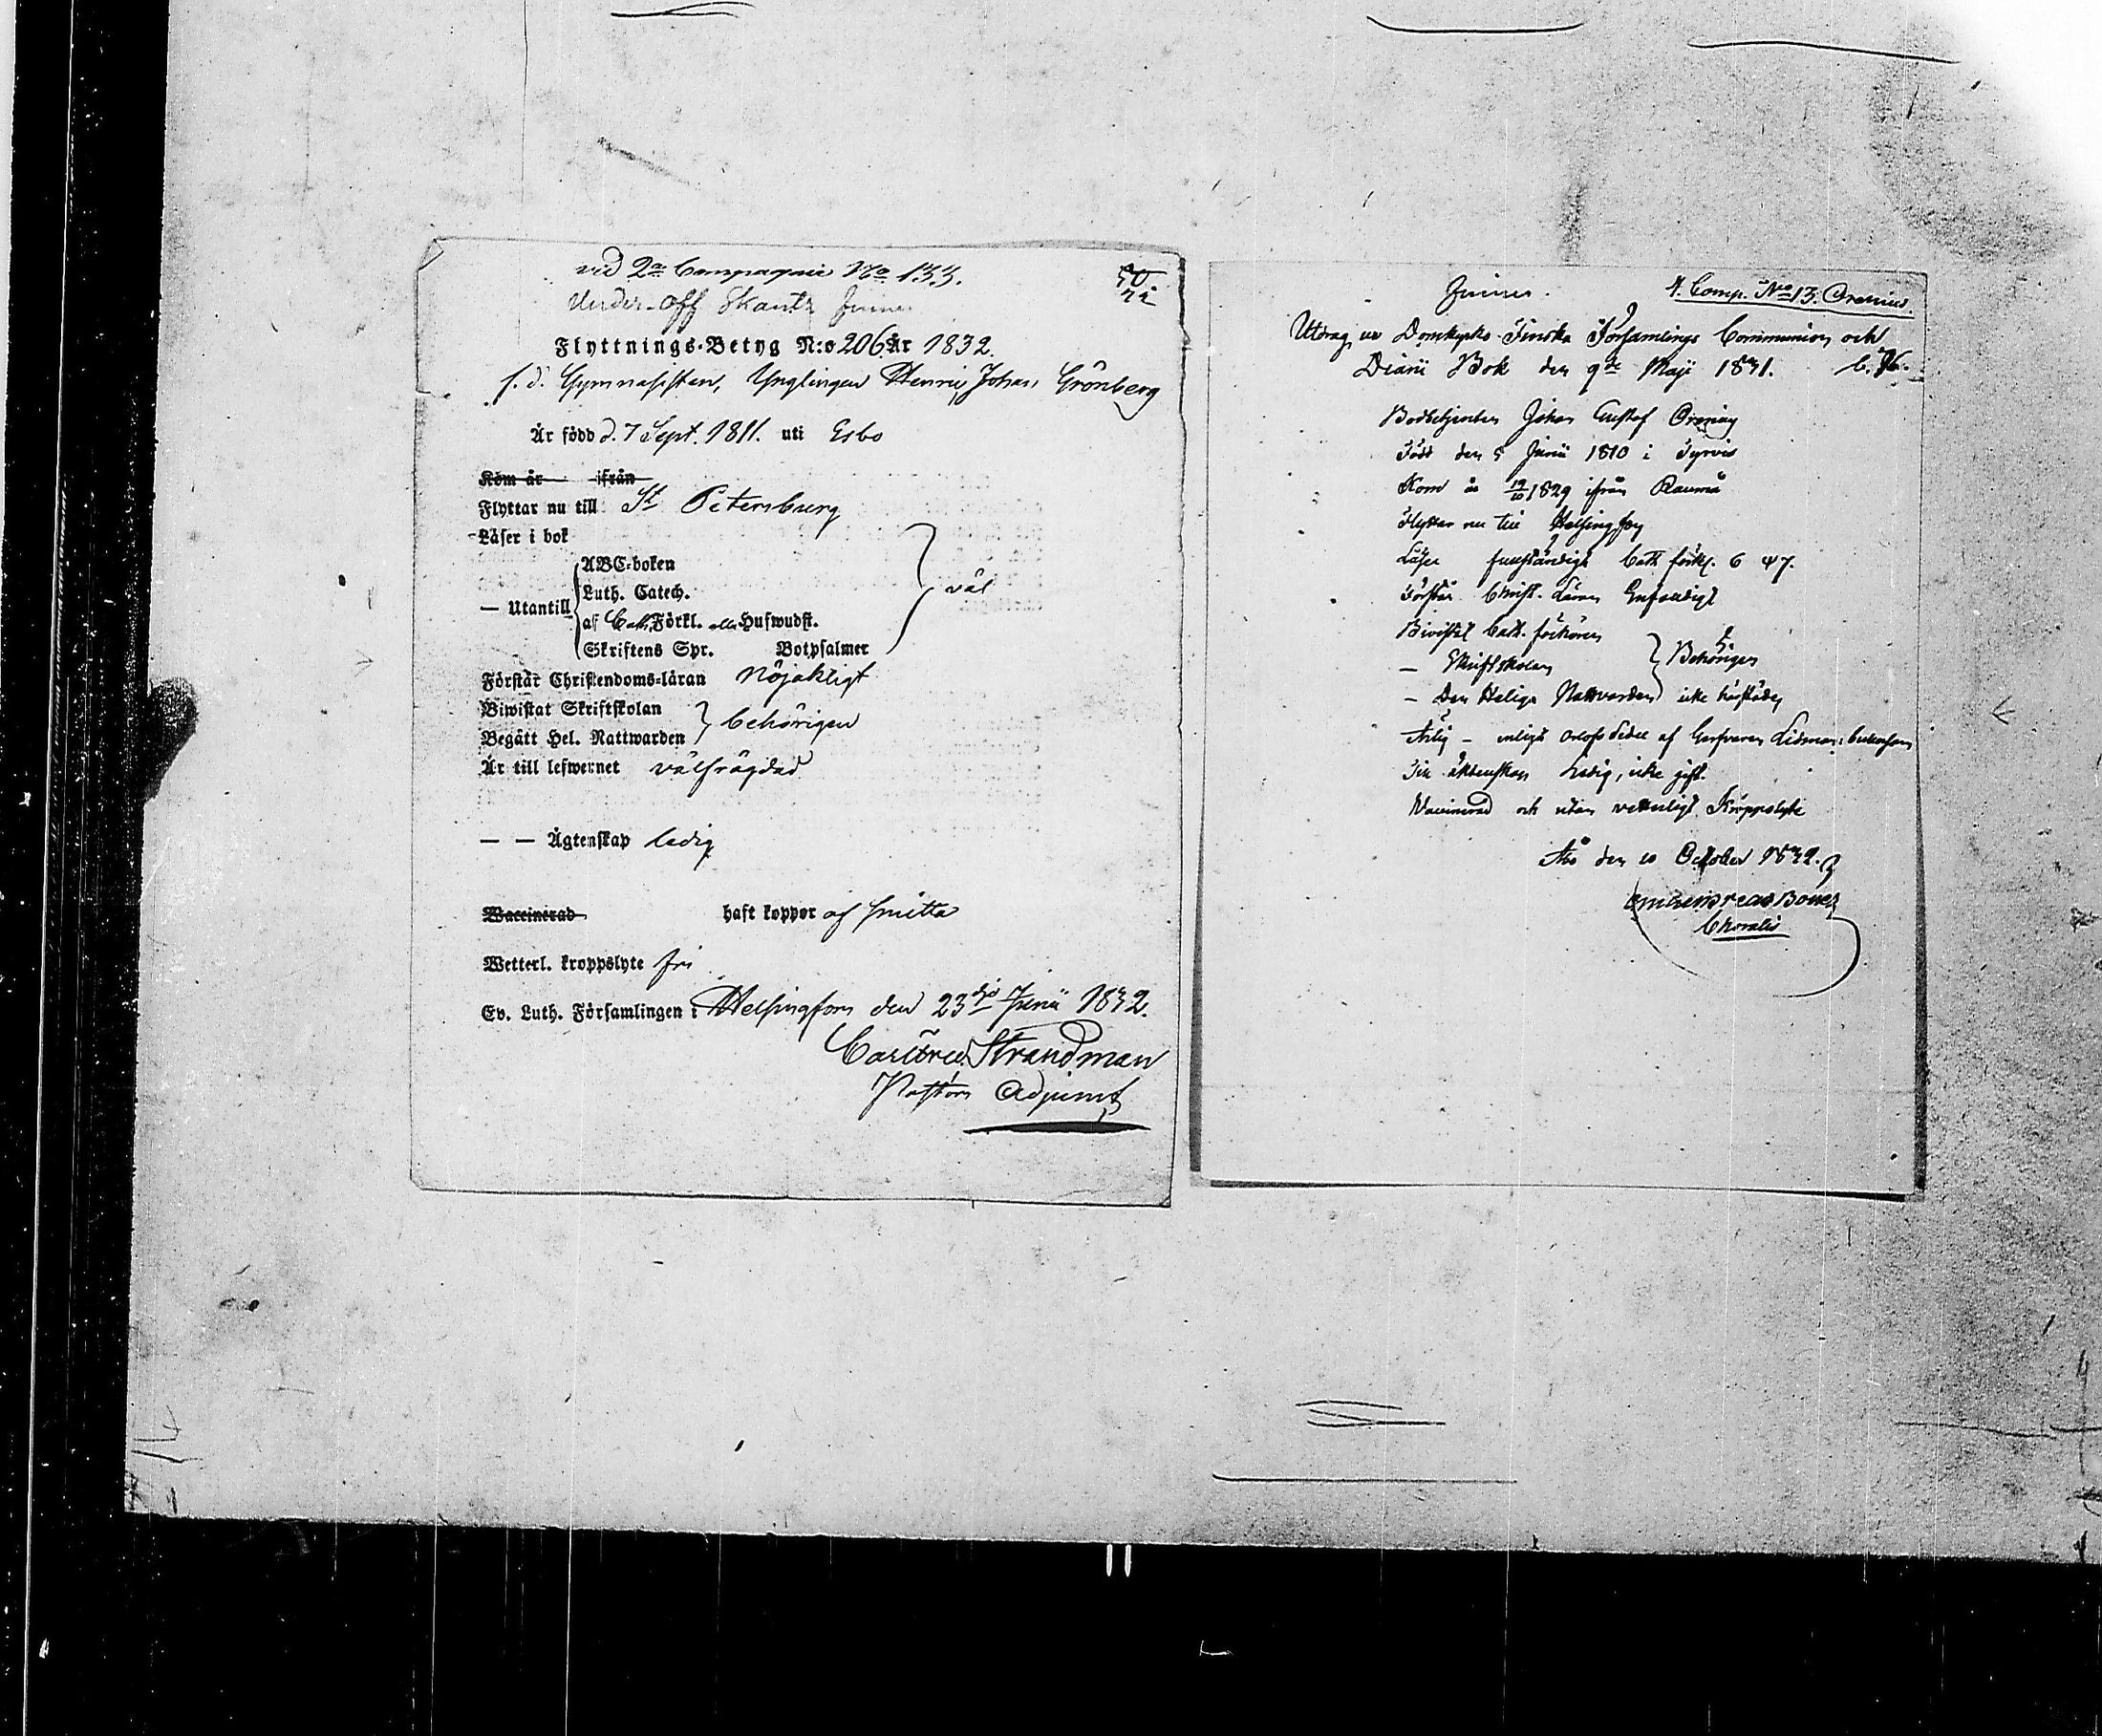 vid 2a Compagnie No 133.
Under-Off Skantz Junner
Flyttnings-Betyg N:o 206 År 1832.
f. d. Gymnasisten, Ynglingen Henric Johan Grönberg
Är född d. 7 Sept. 1811. uti Esbo
Kom år ifrån
Flyttar nu till St Petersburg
Läser i bok
ABC-boken
Luth. Catech.
— Utantill
af Cath. Förkl. eller Huswudst.
väl
Skriftens Spr. Botpsalmer
Förstår Christendoms-läran nöjaktigt
Biwistat Skriftskolan
behörigen
Begått Hel. Nattwarden
Är till lefwernet välfrägdad
— — Ägtenskap ledig
Waccinerad haft koppor af smitta
Wetterl. kroppslyte fri
Ev. Luth. Församlingen i Helsingfors den 23dje Junii 1832.
Strandman
Pastors Adjunct
4. Comp. No 13. Orenius.
Utdrag ur Domkyrko Finska Församlings Communion och
Diarii Bok den 9de Maji 1831.
Bodbetjenten Johan Gustaf
Född den 5 Junii 1810 i Tyrvis
Kom år 19/10 1829 ifrån Raumå
Flyttar nu till Helsingfors
Läser Cath. förkl. 6 47.
Förstår Christ. Läran Enfaldigt
Bivistat Cath. förhören
— Skriftskolan
Behörigen
— Den Heliga Nattvarden icke härstädes
Ärlig — enligt orlofssedel af
Till äktenskap Ledig, icke gift.
Vaccinerad och utan vetterligt Kroppslyte
Åbo den 10 October 1832.